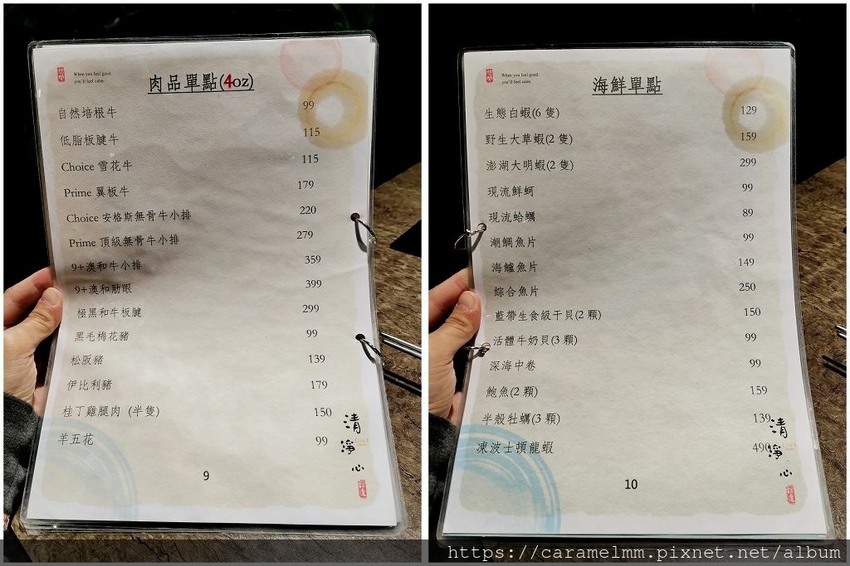 When you feel good
you'll feel calm.
肉品單點(4oz)
自然培根牛 99
低脂板腱牛 115
Choice 雪花牛 115
Prime 翼板牛 179
Choice 安格斯無骨牛小排 220
Prime 頂級無骨牛小排 279
9+澳和牛小排 359
9+澳和肋眼 399
極黑和牛板腱 299
黑毛梅花豬 99
松阪豬 139
伊比利豬 179
桂丁雞腿肉 (半隻) 150
羊五花 99
清
淨
心
9
When you feel good
you'll feel calm.
海鮮單點
生態白蝦(6 隻) 129
野生大草蝦(2 隻) 159
澎湖大明蝦(2 隻) 299
現流鮮蚵 99
現流蛤蠣 89
潮鯛魚片 99
海鱸魚片 149
綜合魚片 250
藍帶生食級干貝(2 顆) 150
活體牛奶貝(3 顆) 99
深海中卷 99
鮑魚(2 顆) 159
半殼牡蠣(3 顆) 139
凍波士頓龍蝦 490
清
淨
心
10
https://caramelmm.pixnet.net/album